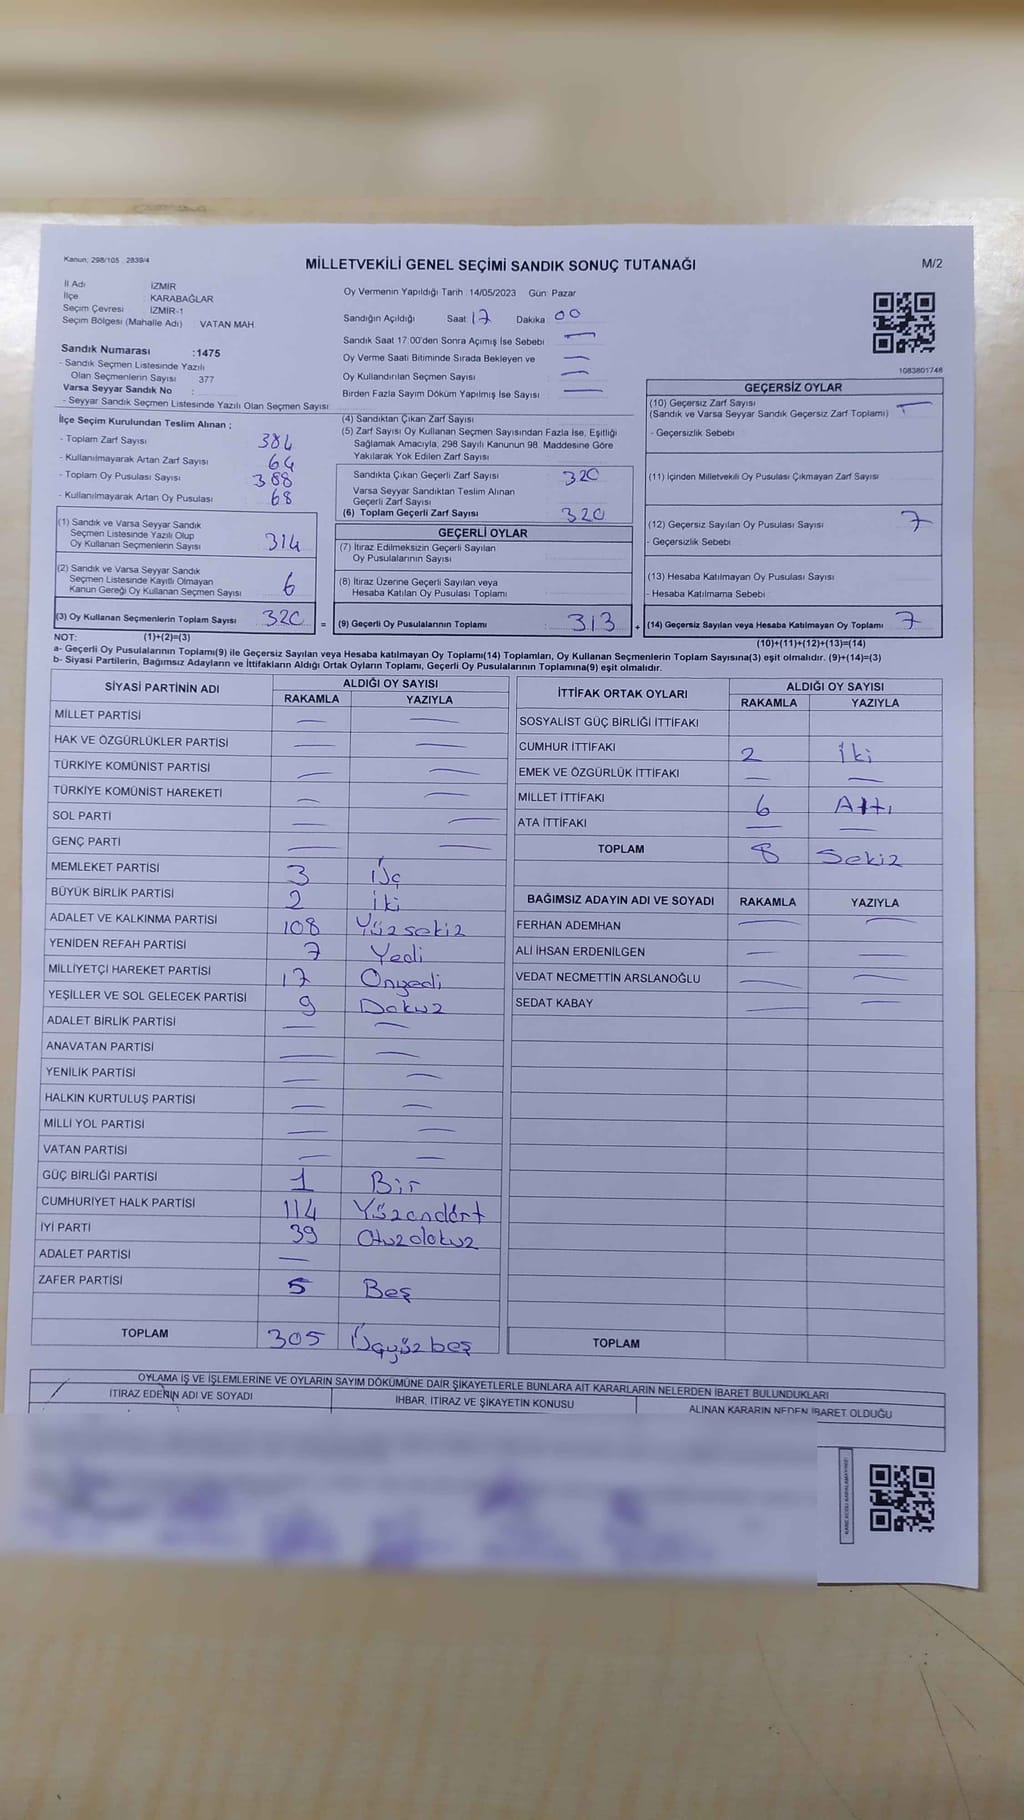 Kanun; 298/105 , 2839/4
MİLLETVEKİLİ GENEL SEÇİMİ SANDIK SONUÇ TUTANAĞI
M/2
İl Adı : İZMİR
İlçe : KARABAĞLAR
Seçim Çevresi : İZMİR-1
Seçim Bölgesi (Mahalle Adı) : VATAN MAH.
Oy Vermenin Yapıldığı Tarih :14/05/2023 Gün: Pazar
Sandığın Açıldığı Saat 17 Dakika 00
Sandık Saat 17:00'den Sonra Açımış İse Sebebi —
Oy Verme Saati Bitiminde Sırada Bekleyen ve —
Oy Kullandırılan Seçmen Sayısı —
Birden Fazla Sayım Döküm Yapılmış İse Sayısı —
1083801746
Sandık Numarası :1475
- Sandık Seçmen Listesinde Yazılı
Olan Seçmenlerin Sayısı : 377
Varsa Seyyar Sandık No :
- Seyyar Sandık Seçmen Listesinde Yazılı Olan Seçmen Sayısı
İlçe Seçim Kurulundan Teslim Alınan ;
- Toplam Zarf Sayısı 384
- Kullanılmayarak Artan Zarf Sayısı 64
- Toplam Oy Pusulası Sayısı 388
- Kullanılmayarak Artan Oy Pusulası 68
(1) Sandık ve Varsa Seyyar Sandık
Seçmen Listesinde Yazılı Olup
Oy Kullanan Seçmenlerin Sayısı 314
(2) Sandık ve Varsa Seyyar Sandık
Seçmen Listesinde Kayıtlı Olmayan
Kanun Gereği Oy Kullanan Seçmen Sayısı 6
(3) Oy Kullanan Seçmenlerin Toplam Sayısı 320 =
(4) Sandıktan Çıkan Zarf Sayısı
(5) Zarf Sayısı Oy Kullanan Seçmen Sayısından Fazla İse, Eşitliği
Sağlamak Amacıyla, 298 Sayılı Kanunun 98. Maddesine Göre
Yakılarak Yok Edilen Zarf Sayısı
Sandıkta Çıkan Geçerli Zarf Sayısı 320
Varsa Seyyar Sandıktan Teslim Alınan
Geçerli Zarf Sayısı
(6) Toplam Geçerli Zarf Sayısı 320
GEÇERLİ OYLAR
(7) İtiraz Edilmeksizin Geçerli Sayılan
Oy Pusulalarının Sayısı
(8) İtiraz Üzerine Geçerli Sayılan veya
Hesaba Katılan Oy Pusulası Toplamı
(9) Geçerli Oy Pusulalarının Toplamı : 313 +
GEÇERSİZ OYLAR
(10) Geçersiz Zarf Sayısı —
(Sandık ve Varsa Seyyar Sandık Geçersiz Zarf Toplamı)
- Geçersizlik Sebebi
(11) İçinden Milletvekili Oy Pusulası Çıkmayan Zarf Sayısı
(12) Geçersiz Sayılan Oy Pusulası Sayısı 7
- Geçersizlik Sebebi
(13) Hesaba Katılmayan Oy Pusulası Sayısı
- Hesaba Katılmama Sebebi
(14) Geçersiz Sayılan veya Hesaba Katılmayan Oy Toplamı : 7
NOT: (1)+(2)=(3) (10)+(11)+(12)+(13)=(14)
a- Geçerli Oy Pusulalarının Toplamı(9) ile Geçersiz Sayılan veya Hesaba katılmayan Oy Toplamı(14) Toplamları, Oy Kullanan Seçmenlerin Toplam Sayısına(3) eşit olmalıdır. (9)+(14)=(3)
b- Siyasi Partilerin, Bağımsız Adayların ve İttifakların Aldığı Ortak Oyların Toplamı, Geçerli Oy Pusulalarının Toplamına(9) eşit olmalıdır.
SİYASİ PARTİNİN ADI ALDIĞI OY SAYISI
RAKAMLA YAZIYLA
MİLLET PARTİSİ — —
HAK VE ÖZGÜRLÜKLER PARTİSİ — —
TÜRKİYE KOMÜNİST PARTİSİ — —
TÜRKİYE KOMÜNİST HAREKETİ — —
SOL PARTİ — —
GENÇ PARTİ — —
MEMLEKET PARTİSİ 3 Üç
BÜYÜK BİRLİK PARTİSİ 2 iki
ADALET VE KALKINMA PARTİSİ 108 Yüzsekiz
YENİDEN REFAH PARTİSİ 7 Yedi
MİLLİYETÇİ HAREKET PARTİSİ 17 Onyedi
YEŞİLLER VE SOL GELECEK PARTİSİ 9 Dokuz
ADALET BİRLİK PARTİSİ — —
ANAVATAN PARTİSİ — —
YENİLİK PARTİSİ — —
HALKIN KURTULUŞ PARTİSİ — —
MİLLİ YOL PARTİSİ — —
VATAN PARTİSİ — —
GÜÇ BİRLİĞİ PARTİSİ 1 Bir
CUMHURİYET HALK PARTİSİ 114 Yüzondört
İYİ PARTİ 39 Otuzdokuz
ADALET PARTİSİ —
ZAFER PARTİSİ 5 Beş
TOPLAM 305 Üçyüzbeş
İTTİFAK ORTAK OYLARI ALDIĞI OY SAYISI
RAKAMLA YAZIYLA
SOSYALİST GÜÇ BİRLİĞİ İTTİFAKI
CUMHUR İTTİFAKI 2 İki
EMEK VE ÖZGÜRLÜK İTTİFAKI — —
MİLLET İTTİFAKI 6 Altı
ATA İTTİFAKI — —
TOPLAM 8 Sekiz
BAĞIMSIZ ADAYIN ADI VE SOYADI RAKAMLA YAZIYLA
FERHAN ADEMHAN — —
ALİ İHSAN ERDENİLGEN — —
VEDAT NECMETTİN ARSLANOĞLU — —
SEDAT KABAY — —
TOPLAM
OYLAMA İŞ VE İŞLEMLERİNE VE OYLARIN SAYIM DÖKÜMÜNE DAİR ŞİKAYETLERLE BUNLARA AİT KARARLARIN NELERDEN İBARET BULUNDUKLARI
İTİRAZ EDENİN ADI VE SOYADI İHBAR, İTİRAZ VE ŞİKAYETİN KONUSU ALINAN KARARIN NEDEN İBARET OLDUĞU